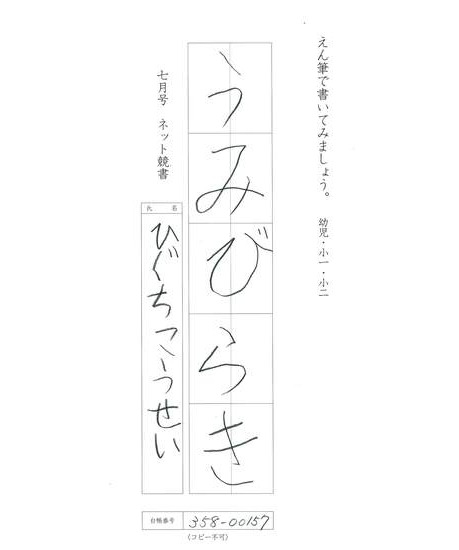 えん筆で書いてみましょう。　幼児・小一・小二
うみびらき
七月号　ネット競書
氏　名
ひぐちこうせい
台帳番号　358-00157
（コピー不可）